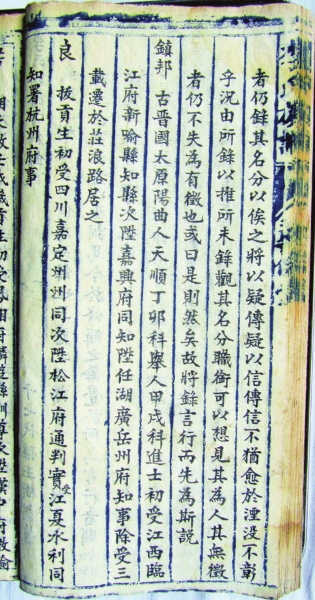 者仍錄其名分以俟之將以疑傳疑以信傳信不猶愈於湮沒不彰
乎況由所錄以推所未錄觀其名分職銜可以想見其為人其無徵
者仍不失為有徵也或曰是則然矣故將錄言行而先為斯說
鎮邦 古晉國太原陽曲人天順丁卯科舉人甲戌科進士初受江西臨
江府新喻縣知縣次陞嘉興府同知陞任湖廣岳州府知事除受三
載遷於莊浪路居之
良 拔貢生初受四川嘉定州州同次陞松江府通判實受江夏水利同
知署杭州府事